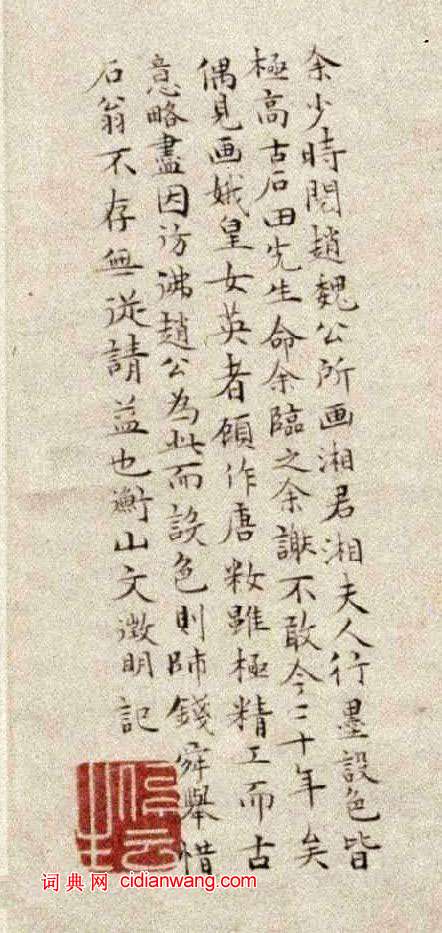 余少時閱趙魏公所画湘君湘夫人行墨設色皆
極高古石田先生命余臨之余謝不敢今二十年矣
偶見画娥皇女英者顧作唐粧雖極精工而古
意略盡因彷彿趙公為此而設色則師錢舜舉惜
石翁不存無從請益也衡山文徵明記
词典网 cidianwang.com